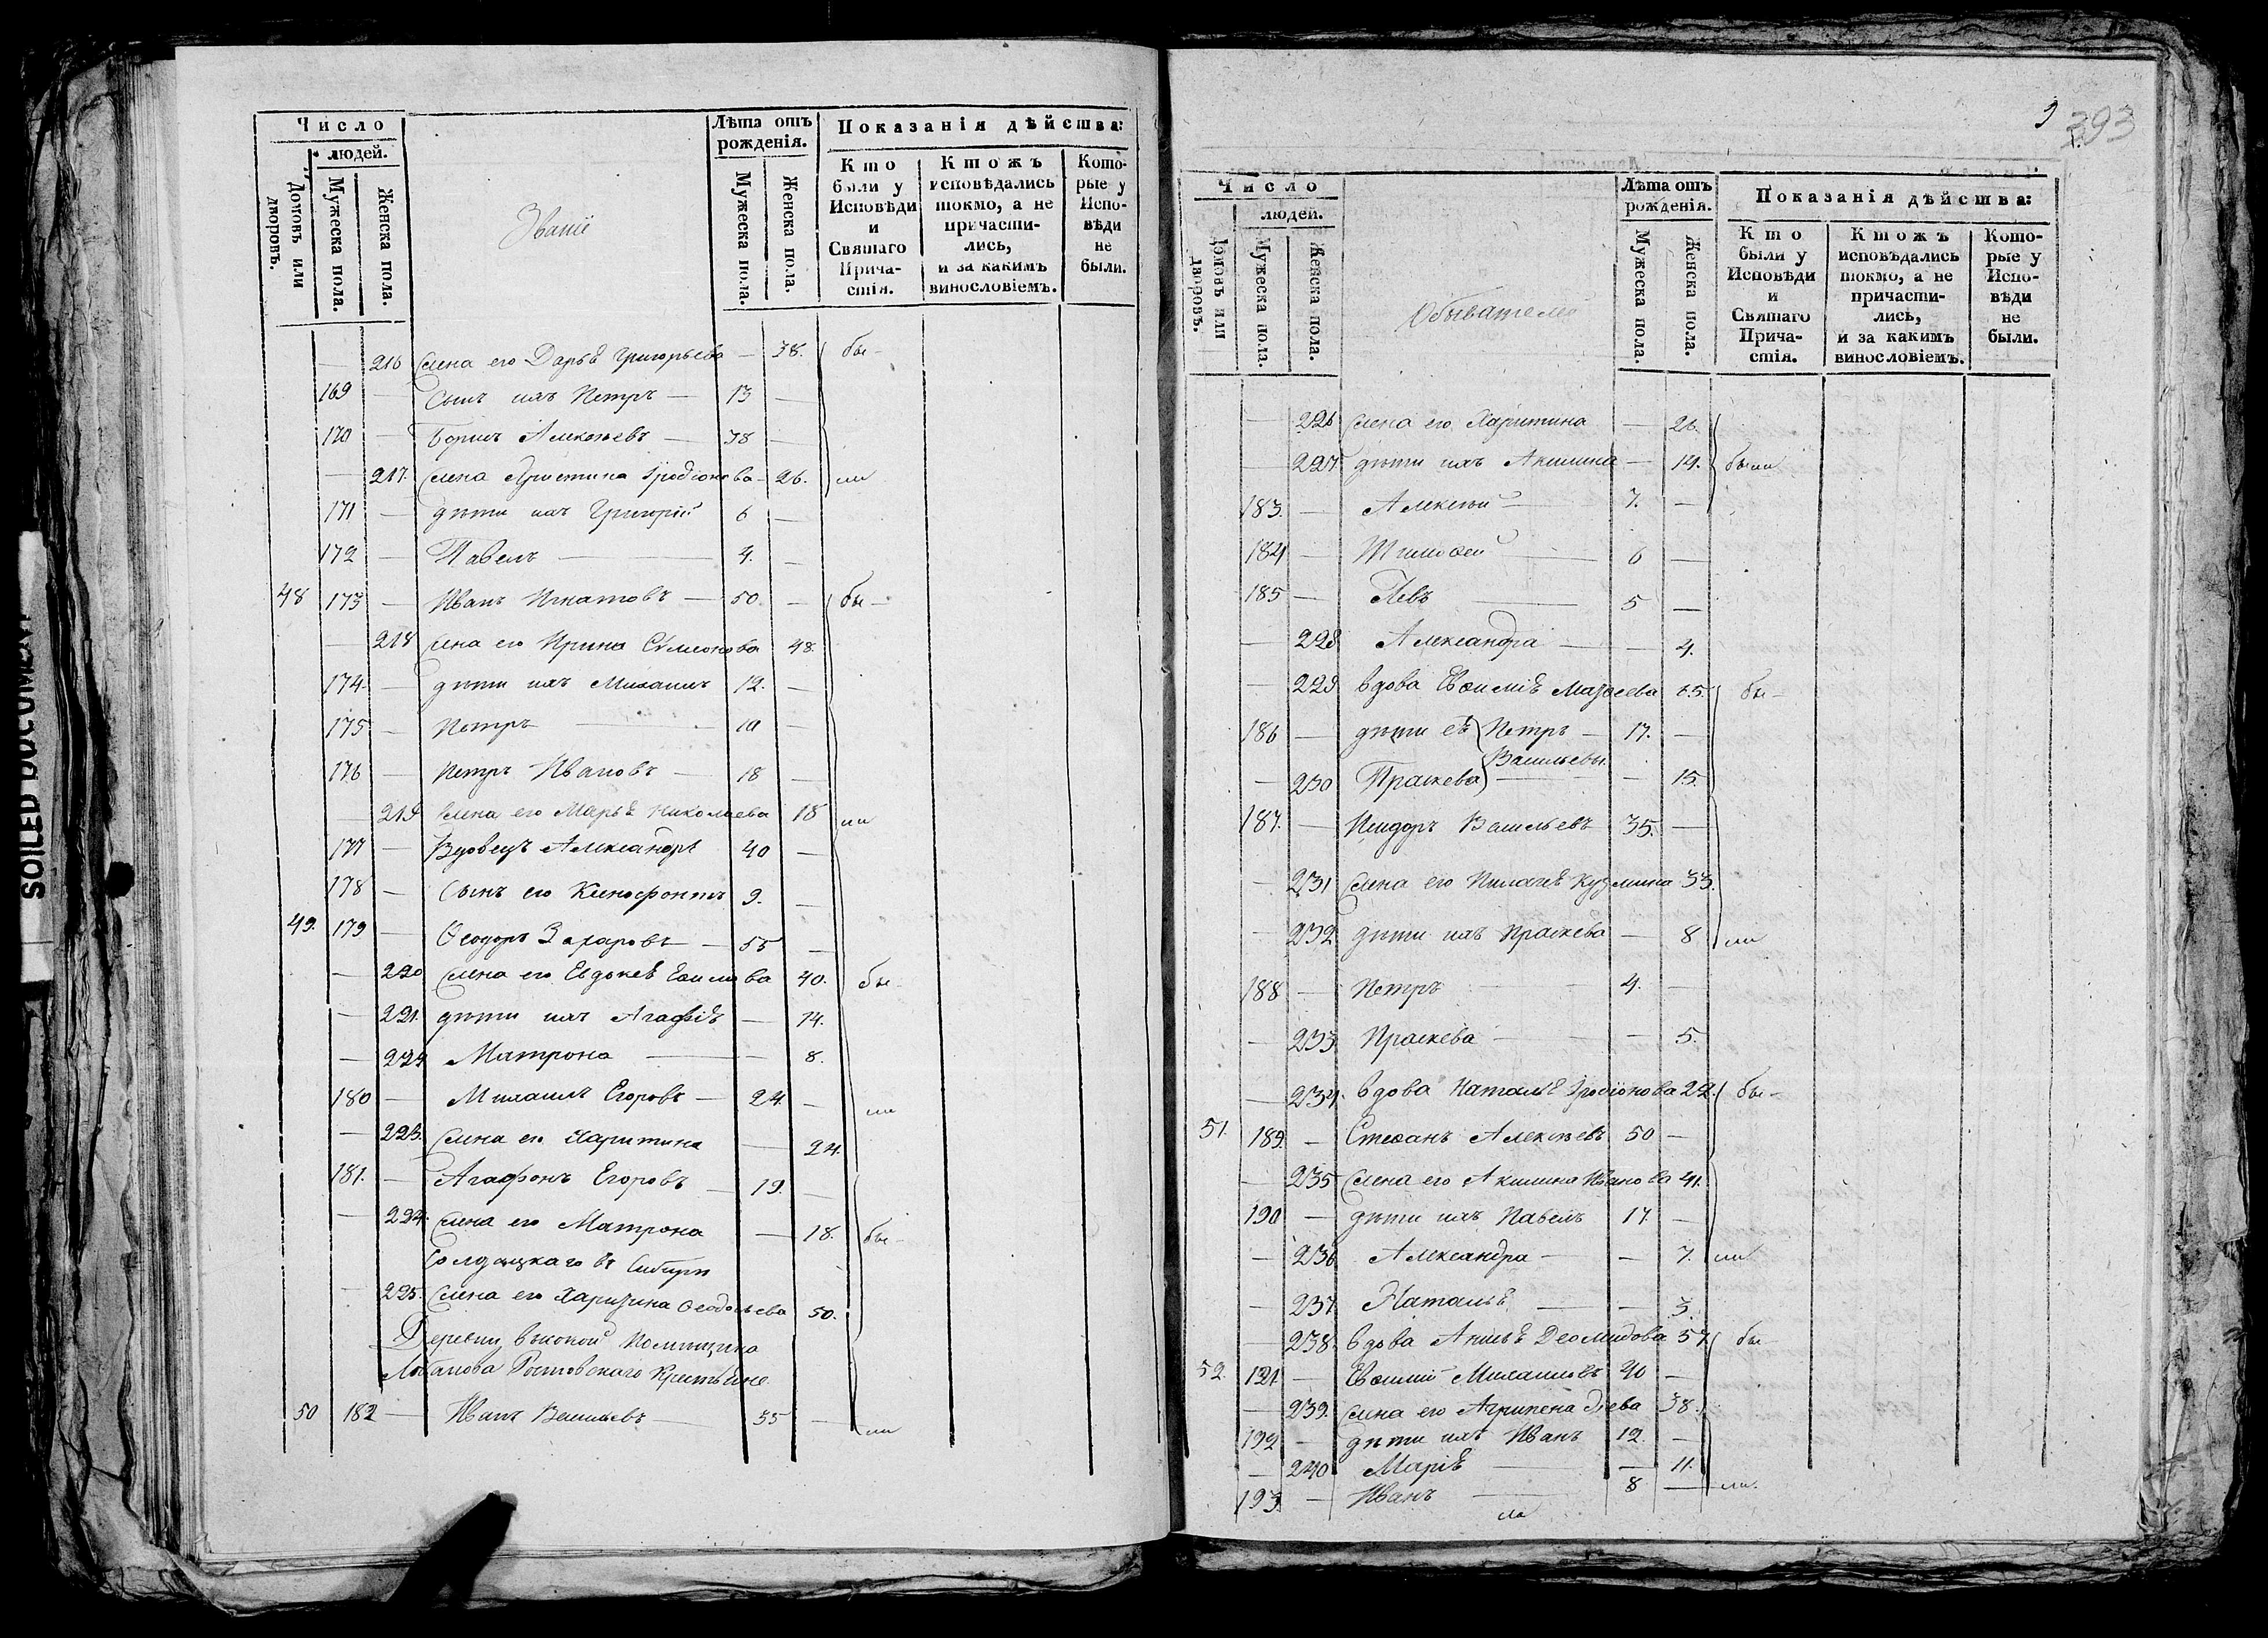 Число
людей.
Домовъ или дворовъ.
Мужеска пола.
Женска пола.
Званіе
Лѣта отъ рожденія.
Мужеска пола.
Женска пола.
Показанія дѣйства:
Кто были у Исповѣди и Святаго Причастія.
Ктожъ исповѣдались токмо, а не причастились, и за какимъ винословіемъ.
Которые у Исповѣди не были.
— 216 Жена его Дарья Григорьева — 38. бы-
169 — Сынъ ихъ Петръ — 13 —
170 — Борисъ Алексѣевъ — 38 —
— 217. Жена Христина Іродіонова — 26. ли
171 — дѣти ихъ Григорій 6 —
172 — Павелъ — 4. —
48 173 — Иванъ Игнатовъ — 50 — бы-
— 218 жена его Ирина Сѵмеонова 48.
174. — дѣти ихъ Михаилъ 12. —
175 — Петръ — 10 —
176 — Петръ Ивановъ — 18 —
— 219 Жена его Марья Николаева 18 ли
177 — Вдовецъ Александръ 40 —
178 — Сынъ его Ксенофонтъ 9. —
49. 179 — Ѳеодоръ Захаровъ — 55 —
— 220 Жена его Евдокея Еѳимова 40. бы-
— 221. дѣти ихъ Агафія — 14.
— 222 Матрона — 8.
180 — Михаилъ Егоровъ — 24. — ли
— 223. Жена его Харитина — 24.
181. — Агафонъ Егоровъ — 19. —
— 224. Жена его Матрона — 18. бы-
Солдацкаго въ Сибири
— 225. Жена его Харитина Ѳеодосьева 50.
Деревни Высокой Помѣщика
Лобанова Ростовскаго Крестьяне
50 182 — Иванъ Васильевъ — 35 — ли
393
Число
людей.
Домовъ или дворовъ.
Мужеска пола.
Женска пола.
Обывателей
Лѣта отъ рожденія.
Мужеска пола.
Женска пола.
Показанія дѣйства:
Кто были у Исповѣди и Святаго Причастія.
Ктожъ исповѣдались токмо, а не причастились, и за какимъ винословіемъ.
Которые у Исповѣди не были.
— 226 Жена его Харитина — 26.
— 227. дѣти ихъ Акилина — 14. были
183. — Алексѣй — 7. —
184 — Тимоѳей — 6 —
185 — Левъ — 5 —
— 228 Александра — — 4.
— 229 вдова Евѳимія 65. бы-
186 — дѣти ея Петръ — 17. —
Васильевы
— 230 Праскева — — 15.
187. — Исидоръ Васильевъ 35. —
— 231 Жена его Пелагея Кузмина 33.
— 232 дѣти ихъ Праскева — 8 ли
188 — Петръ — 4. —
— 233 Праскева — — 5.
— 234. вдова Наталья Іродіонова 22. бы-
51. 189. — Стеѳанъ Алексѣевъ 50 —
— 235 Жена его Акилина Иванова 41.
190 — дѣти ихъ Павелъ 17 —
— 236 Александра — — 7. ли
— 237. Наталья — — 3.
— 238. вдова Анисья Деомидова 57. бы
52. 191 — Евѳимій Михаиловъ 40 —
— 239. Жена его Агрипена 38.
192 — дѣти ихъ Иванъ 12. —
— 240 Марія — — 11.
193. — Иванъ — 8 — ли.